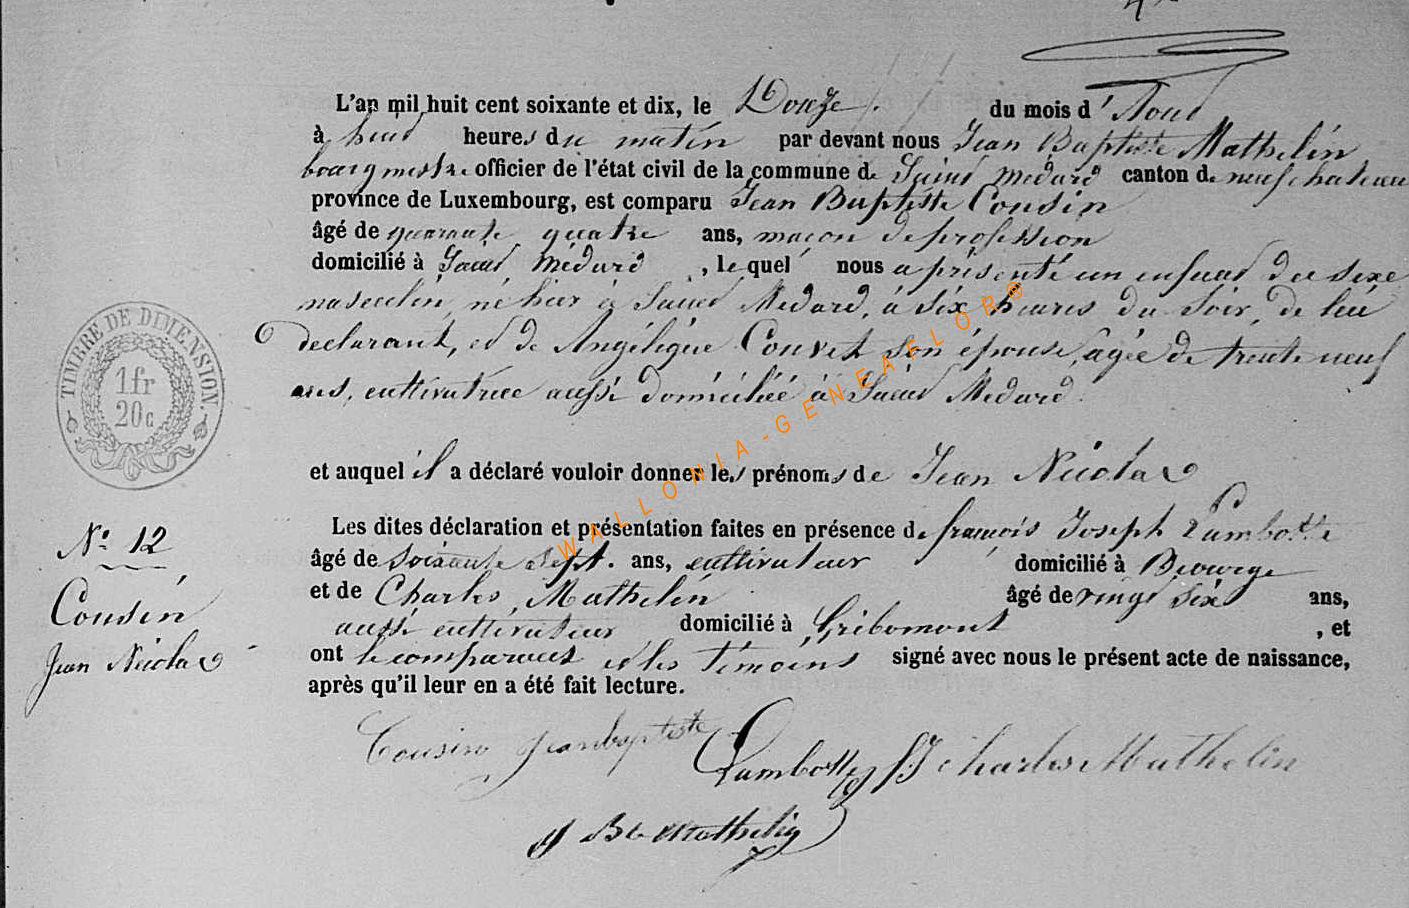 L'an mil huit cent soixante et dix, le Douze du mois d'Aout
à huit heures du matin par devant nous Jean Baptiste Mathelin
bourgmestre officier de l'état civil de la commune de Saint Médard canton de neufchateau
province de Luxembourg, est comparu Jean Baptiste Cousin
âgé de quarante quatre ans, maçon de profession
domicilié à Saint Médard, lequel nous a présenté un enfant du sexe
masculin, né hier à Saint Medard, à six heures du soir, de lui
TIMBRE DE DIMENSION.
1 fr
20 c
declarant, et de Angélique Couvet son épouse, agée de trente neuf
ans, cultivatrice aussi domiciliée à Saint Medard.
et auquel il a déclaré vouloir donner les prénoms de Jean Nicolas
Les dites déclaration et présentation faites en présence de françois Joseph Lambotte
No. 12
âgé de soixante sept. ans, cultivateur domicilié à
et de Charles Mathelin âgé de vingt six ans,
Cousin
aussi cultivateur domicilié à Gribomont, et
Jean Nicolas
ont le comparant et les témoins signé avec nous le présent acte de naissance,
après qu'il leur en a été fait lecture.
Cousin Jeanbaptiste Lambotte fJ charles Mathelin
J Bte Mathelin
WALLONIA-GENEAFLOR®